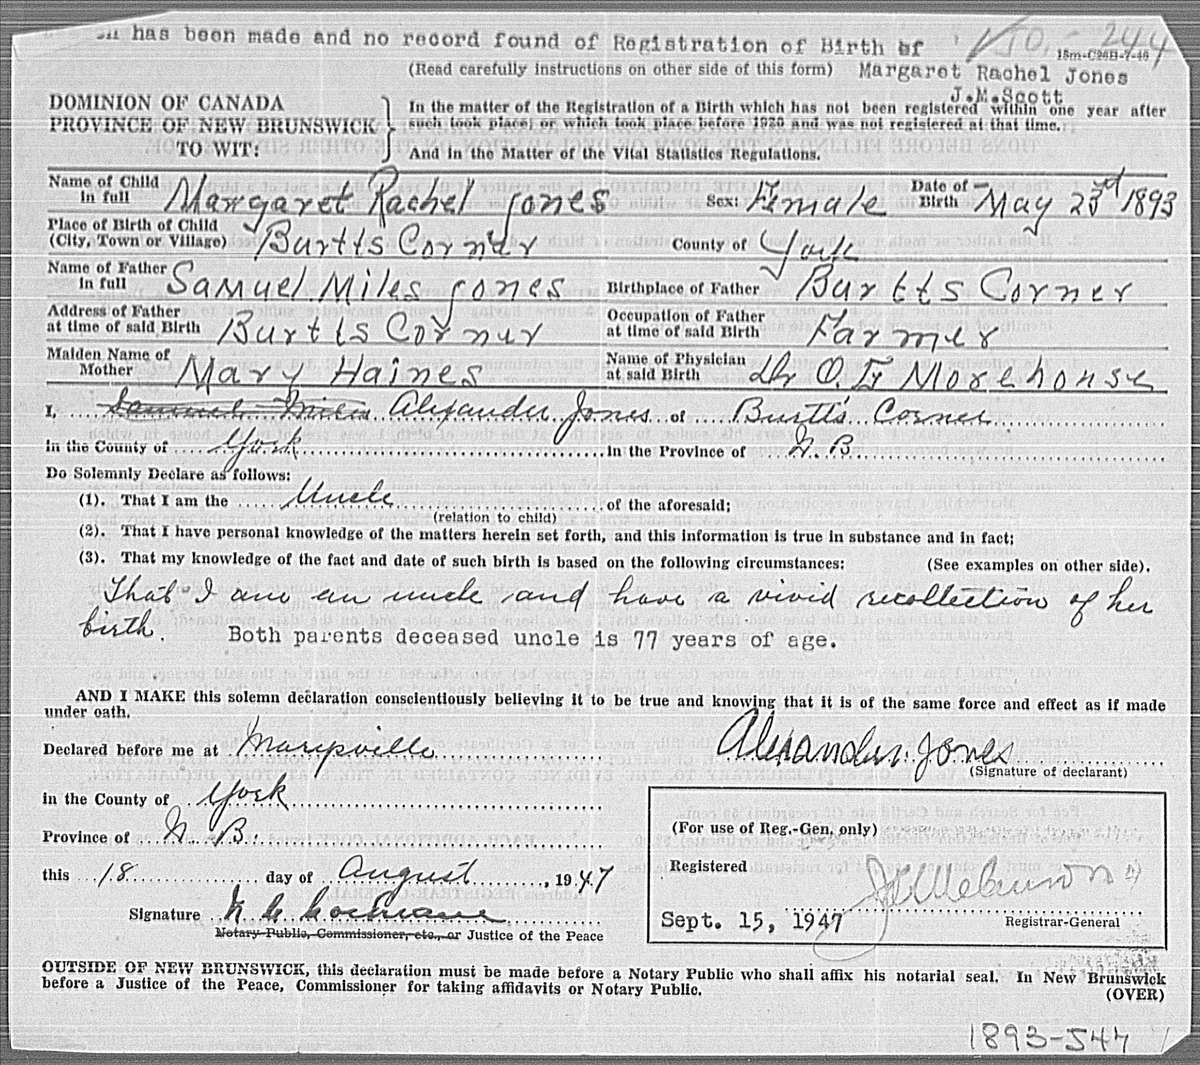 has been made and no record found of Registration of Birth of
244
15m-C26B-7-46
(Read carefully instructions on other side of this form) Margaret Rachel Jones
J.M.Scott
DOMINION OF CANADA
PROVINCE OF NEW BRUNSWICK
TO WIT:
In the matter of the Registration of a Birth which has not been registered within one year after
such took place; or which took place before 1920 and was not registered at that time.
And in the Matter of the Vital Statistics Regulations.
Name of Child in full Margaret Rachel Jones Sex: Female Date of Birth May 23rd 1893
Place of Birth of Child (City, Town or Village) Burtts Corner County of York
Name of Father in full Samuel Miles Jones Birthplace of Father Burtts Corner
Address of Father at time of said Birth Burtts Corner Occupation of Father at time of said Birth Farmer
Maiden Name of Mother Mary Haines Name of Physician at said Birth Dr O. E. Morehouse
I, Samuel Miles Alexander Jones of Burtt's Corner
in the County of York in the Province of N.B.
Do Solemnly Declare as follows:
(1). That I am the Uncle of the aforesaid;
(relation to child)
(2). That I have personal knowledge of the matters herein set forth, and this information is true in substance and in fact;
(3). That my knowledge of the fact and date of such birth is based on the following circumstances: (See examples on other side).
That I am an uncle and have a vivid recollection of her
birth. Both parents deceased uncle is 77 years of age.
AND I MAKE this solemn declaration conscientiously believing it to be true and knowing that it is of the same force and effect as if made
under oath.
Declared before me at Marysville Alexander Jones
(Signature of declarant)
in the County of York
Province of N. B.
this 18 day of August, 1947
Signature N. C. Cochrane
Notary Public, Commissioner, etc., or Justice of the Peace
(For use of Reg.-Gen. only)
Registered
Sept. 15, 1947
Registrar-General
OUTSIDE OF NEW BRUNSWICK, this declaration must be made before a Notary Public who shall affix his notarial seal. In New Brunswick
before a Justice of the Peace, Commissioner for taking affidavits or Notary Public.
(OVER)
1893-547